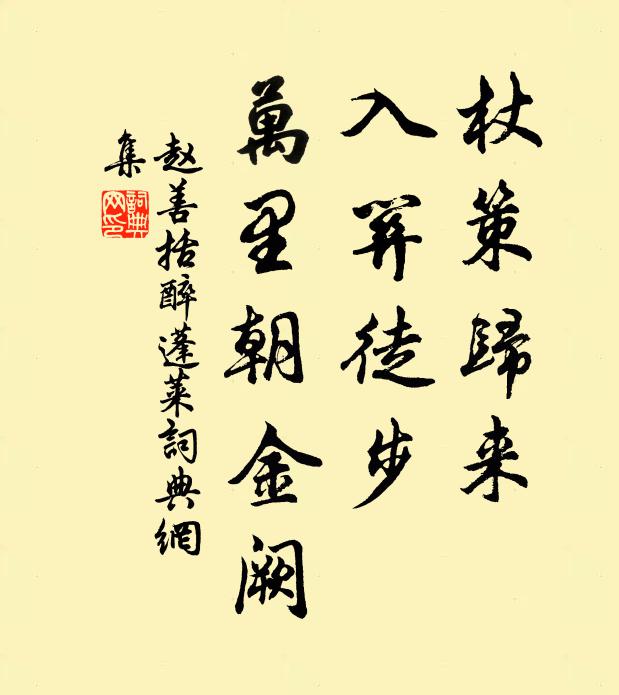 杖策歸来
入關徒步
萬里朝金阙
赵善括醉蓬萊詞典網
集
詞典
网印